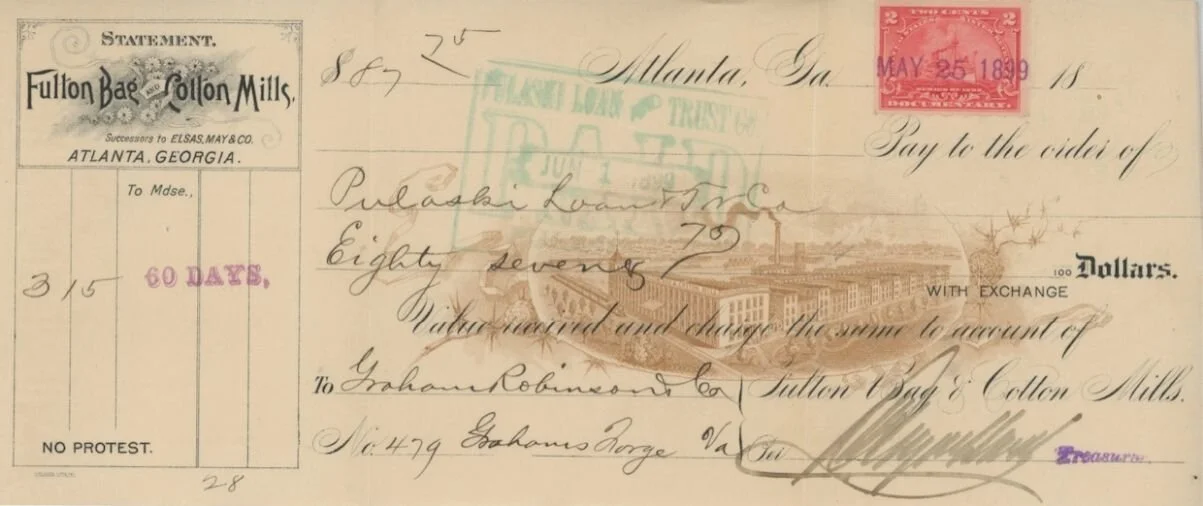 STATEMENT.
Fulton Bag AND Cotton Mills,
Successors to ELSAS, MAY & CO.
ATLANTA, GEORGIA.
To Mdse.,
3 15 60 DAYS,
NO PROTEST.
28
$ 87 75
Atlanta, Ga. 18
TWO CENTS
2 2
MAY 25 1899
DOCUMENTARY.
PULASKI LOAN & TRUST Co
PAID
JUN 1 1899
Pay to the order of
Pulaski Loan & Tr Co
Eighty seven & 75 100 Dollars.
WITH EXCHANGE
Value received and charge the same to account of
To Graham Robinson & Co Fulton Bag & Cotton Mills.
No. 479 Grahams Forge Va Per Treasurer.